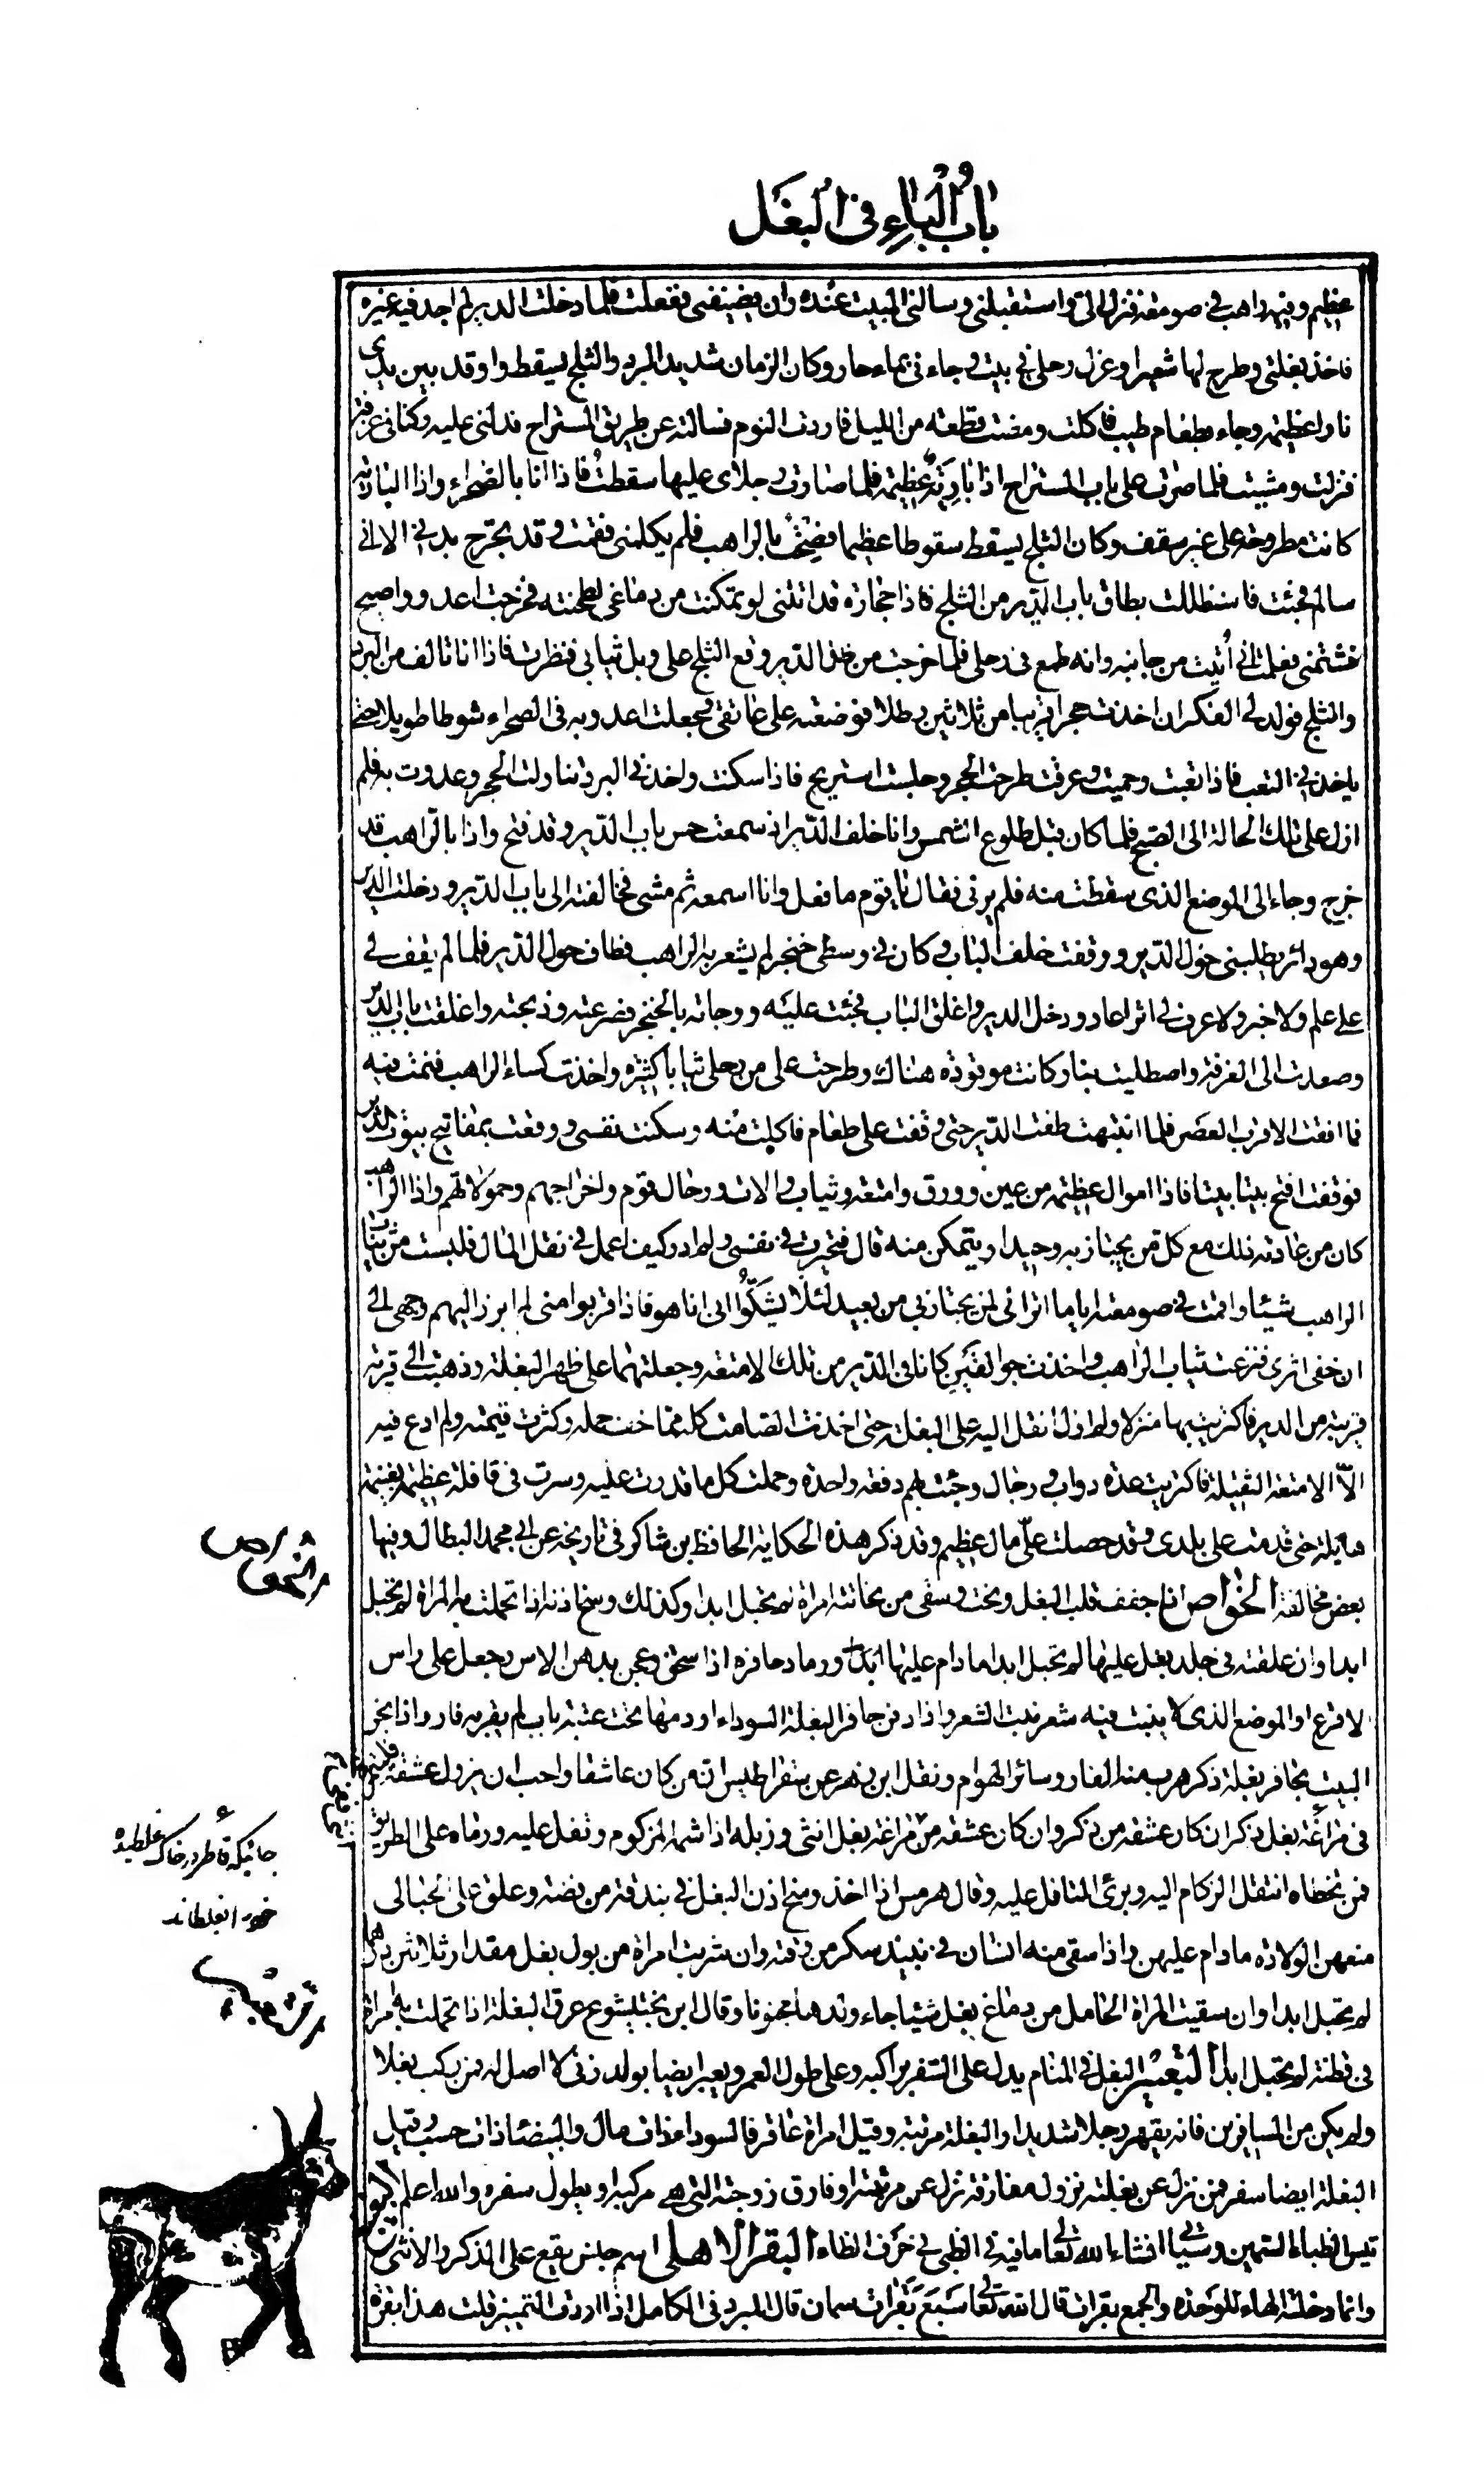 باب الباء في البغل
عظيم وفيه راهب في صومعته فنزل الي واستقبلني وسالني المبيت عنده وان يضيفني ففعلت فلما دخلت الدير لم اجد فيه غيره
فاخذ بغلتي وطرح لها شعيرا وعزل رحلي في بيت وجاءني بماء حار وكان الزمان شديد البرد والثلج يسقط واوقد بين يدي
نارا عظيمة وجاء بطعام طيب فاكلت ومضت قطعة من الليل فاردت النوم فسالته عن طريق المستراح فدلني عليه وكنا في غرفة
فنزلت ومشيت فلما صرت على باب المستراح اذا بارية عظيمة فلما صارت رجلاي عليها سقطت فاذا انا بالصحراء واذا البارية
كانت مطروحة على غير سقف وكان الثلج يسقط سقوطا عظيما فصحت بالراهب فلم يكلمني فقمت وقد تجرح بدني الا اني
سالم فجئت فاستظللت بطاق باب الدير من الثلج فاذا حجارة قد اتتني لو تمكنت من دماغي لطحنته فخرجت اعدو واصيح
فشتمني فعلمت اني أتيت من جانبه وانه طمع في رحلي فلما خرجت من ظل الدير وقع الثلج علي وبل ثيابي فنظرت فاذا انا تالف من البرد
والثلج فولد لي الفكر ان اخذت حجرا قريبا من ثلاثين رطلا فوضعته على عاتقي فجعلت اعدو به في الصحراء شوطا طويلا حتى
ياخذني التعب فاذا تعبت وحميت وعرقت طرحت الحجر وجلست استريح فاذا سكنت واخذني البرد تناولت الحجر وعدوت به فلم
ازل على تلك الحالة الى الصبح فلما كان قبل طلوع الشمس وانا خلف الدير اذ سمعت حس باب الدير وقد فتح واذا بالراهب قد
خرج وجاء الى الموضع الذي سقطت منه فلم يرني فقال يا قوم ما فعل وانا اسمعه ثم مشى فخالفته الى باب الدير ودخلت الدير
وهو دائر يطلبني حول الدير ووقفت خلف الباب وكان في وسطي خنجر لم يشعر به الراهب فطاف حول الدير فلما لم يقف لي
على علم ولا خبر ولا عرف لي اثرا عاد ودخل الدير واغلق الباب فجئت عليه ووجاته بالخنجر فصرعته وذبحته واغلقت باب الدير
وصعدت الى الغرفة واصطليت بنار كانت موقودة هناك وطرحت علي من رحلي ثيابا كثيرة واخذت كساء الراهب فنمت فيه
فما افقت الا قرب العصر فلما انتبهت طفت الدير حتى وقفت على طعام فاكلت منه وسكنت نفسي ووقعت بمفاتيح بيوت الدير
فوقفت افتح بيتا بيتا فاذا اموال عظيمة من عين وورق وامتعة وثياب والات ورحال قوم واخراجهم وحمولاتهم واذا الراهب
كان من عادته ذلك مع كل من يجتاز به وحيدا ويتمكن منه قال فتحيرت في نفسي ولم ادر كيف اعمل في نقل المال فلبست من ثياب
الراهب شيئا واقمت في صومعته اياما اتراءى لمن يجتاز بي من بعيد لئلا يشكّوا اني انا هو فاذا قربوا مني لم ابرز اليهم وجهي الى
ان خفي اثري فنزعت ثياب الراهب واخذت جوالقين كانا في الدير من تلك الامتعة وجعلتهما على ظهر البغلة وذهبت الى قرية
قريبة من الدير فاكتريت بها منزلا ولم ازل انقل اليه على البغلة حتى اخذت الصامت كله مما خف حمله وكثرت قيمته ولم ادع فيه
الا الامتعة الثقيلة فاكتريت عدة دواب ورجال وجئت بهم دفعة واحدة وحملت كل ما قدرت عليه وسرت في قافلة عظيمة بغنيمة
هايلة حتى قدمت على بلدي وقد حصلت على مال عظيم وقد ذكر هذه الحكاية الحافظ بن شاكر في تاريخه عن ابي محمد البطال وفيها
بعض مخالفة الخواص اذا جفف قلب البغل ونحت وسقى من نحاتته امراة لم تحبل ابدا وكذلك وسخ اذنه اذا تحملت به المراة لم تحبل
ابدا وان علقته في جلد بغل عليها لم تحبل ابدا ما دام عليها ابدا ورماد حافره اذا سحق وعجن بدهن الاس وجعل على راس
لاقرع او الموضع الذي لا ينبت فيه شعر نبت الشعر واذا دفن حافر البغلة السوداء او دمها تحت عتبة باب لم يقربه فار واذا بخر
البيت بحافر بغلة ذكر هرب منه الفار وسائر الهوام ونقل ابن زهر عن سقراطيس انه من كان عاشقا واحب ان يزول عشقه فليتمرغ
في مراغة بغل ذكر ان كان عشقه من ذكر وان كان عشقه من مراغة بغل انثى وزبله اذا شمه المزكوم وتفل عليه ورماه على الطريق
فمن تخطاه انتقل الزكام اليه وبرئ التافل عليه وقال هرمس اذا اخذ وسخ اذن البغل في بندقة من فضة وعلق على الحبالى
منعهن الولادة ما دام عليهن واذا سقي منه انسان في نبيذ سكر من وقته وان شربت امراة من بول بغل مقدار ثلاثين درهما
لم تحبل ابدا وان سقيت المراة الحامل من دماغ بغل شيئا جاء ولدها مجنونا وقال ابن بختيشوع عرق البغلة اذا تحملت به امراة
في قطنة لم تحبل ابدا التعبير البغل في المنام يدل على السفر براكبه وعلى طول العمر ويعبر ايضا بولد زنى لا اصل له فمن ركب بغلا
ولم يكن من المسافرين فانه يقهر رجلا شديدا والبغلة مرتبة وقيل امراة عاقر فالسوداء ذات مال والبيضاء ذات حسب وقيل
البغلة ايضا سفر فمن نزل عن بغلته نزول مفارقة نزل عن مرتبته او فارق زوجته التي هي مركبه او يطول سفره والله اعلم
تيس الظباء السمين وسياتي انشاء الله تعالى ما فيه في الظبي في حرف الظاء البقر الاهلى اسم جنس يقع على الذكر والانثى
وانما دخلته الهاء للوحدة والجمع بقرات قال الله تعالى سبع بقرات سمان قال المبرد في الكامل اذا اردت التمييز قلت هذا بقرة
جائيكه قاطر در خاك غلطيده
خود را بغلطاند